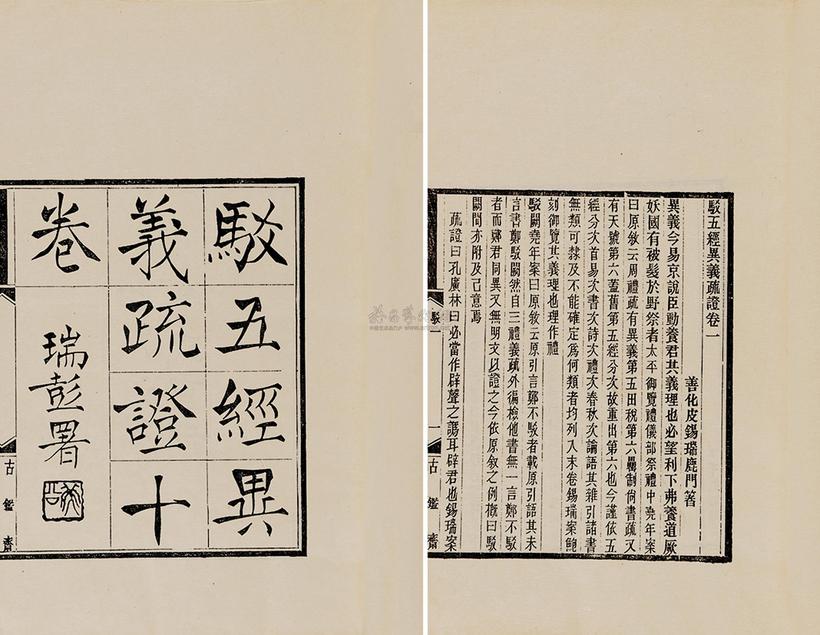 駁五經異
義疏證十
卷
瑞彭署
古鑑齋
駁五經異義疏證卷一
善化皮錫瑞鹿門著
異義今易京說臣動養君其義理也必望利下弗養道厥
妖國有被髮於野祭者太平御覽禮儀部祭禮中堯年案
曰原敘云周禮疏有異義第五田稅第六疊制尙書疏又
有天號第六蓋舊第五經分次故重出第六也今謹依五
經分次首易次書次詩次禮次春秋次論語其雜引諸書
無類可隸及不能確定爲何類者均列入末卷錫瑞案鮑
刻御覽其義理也理作禮
駁闕堯年案曰原敘云原引言鄭不駁者載原引語其未
言書鄭駁闕然自三禮義疏外徧檢他書無一言鄭不駁
者而鄭君同異又無明文以證之今依原敘之例槪曰駁
闕間亦附及己意焉
疏證曰孔廣林曰必當作辟聲之譌耳辟君也錫瑞案
駁
一
古鑑齋